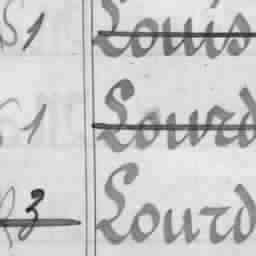 51 Louis
51 Lourd
83 Lourd